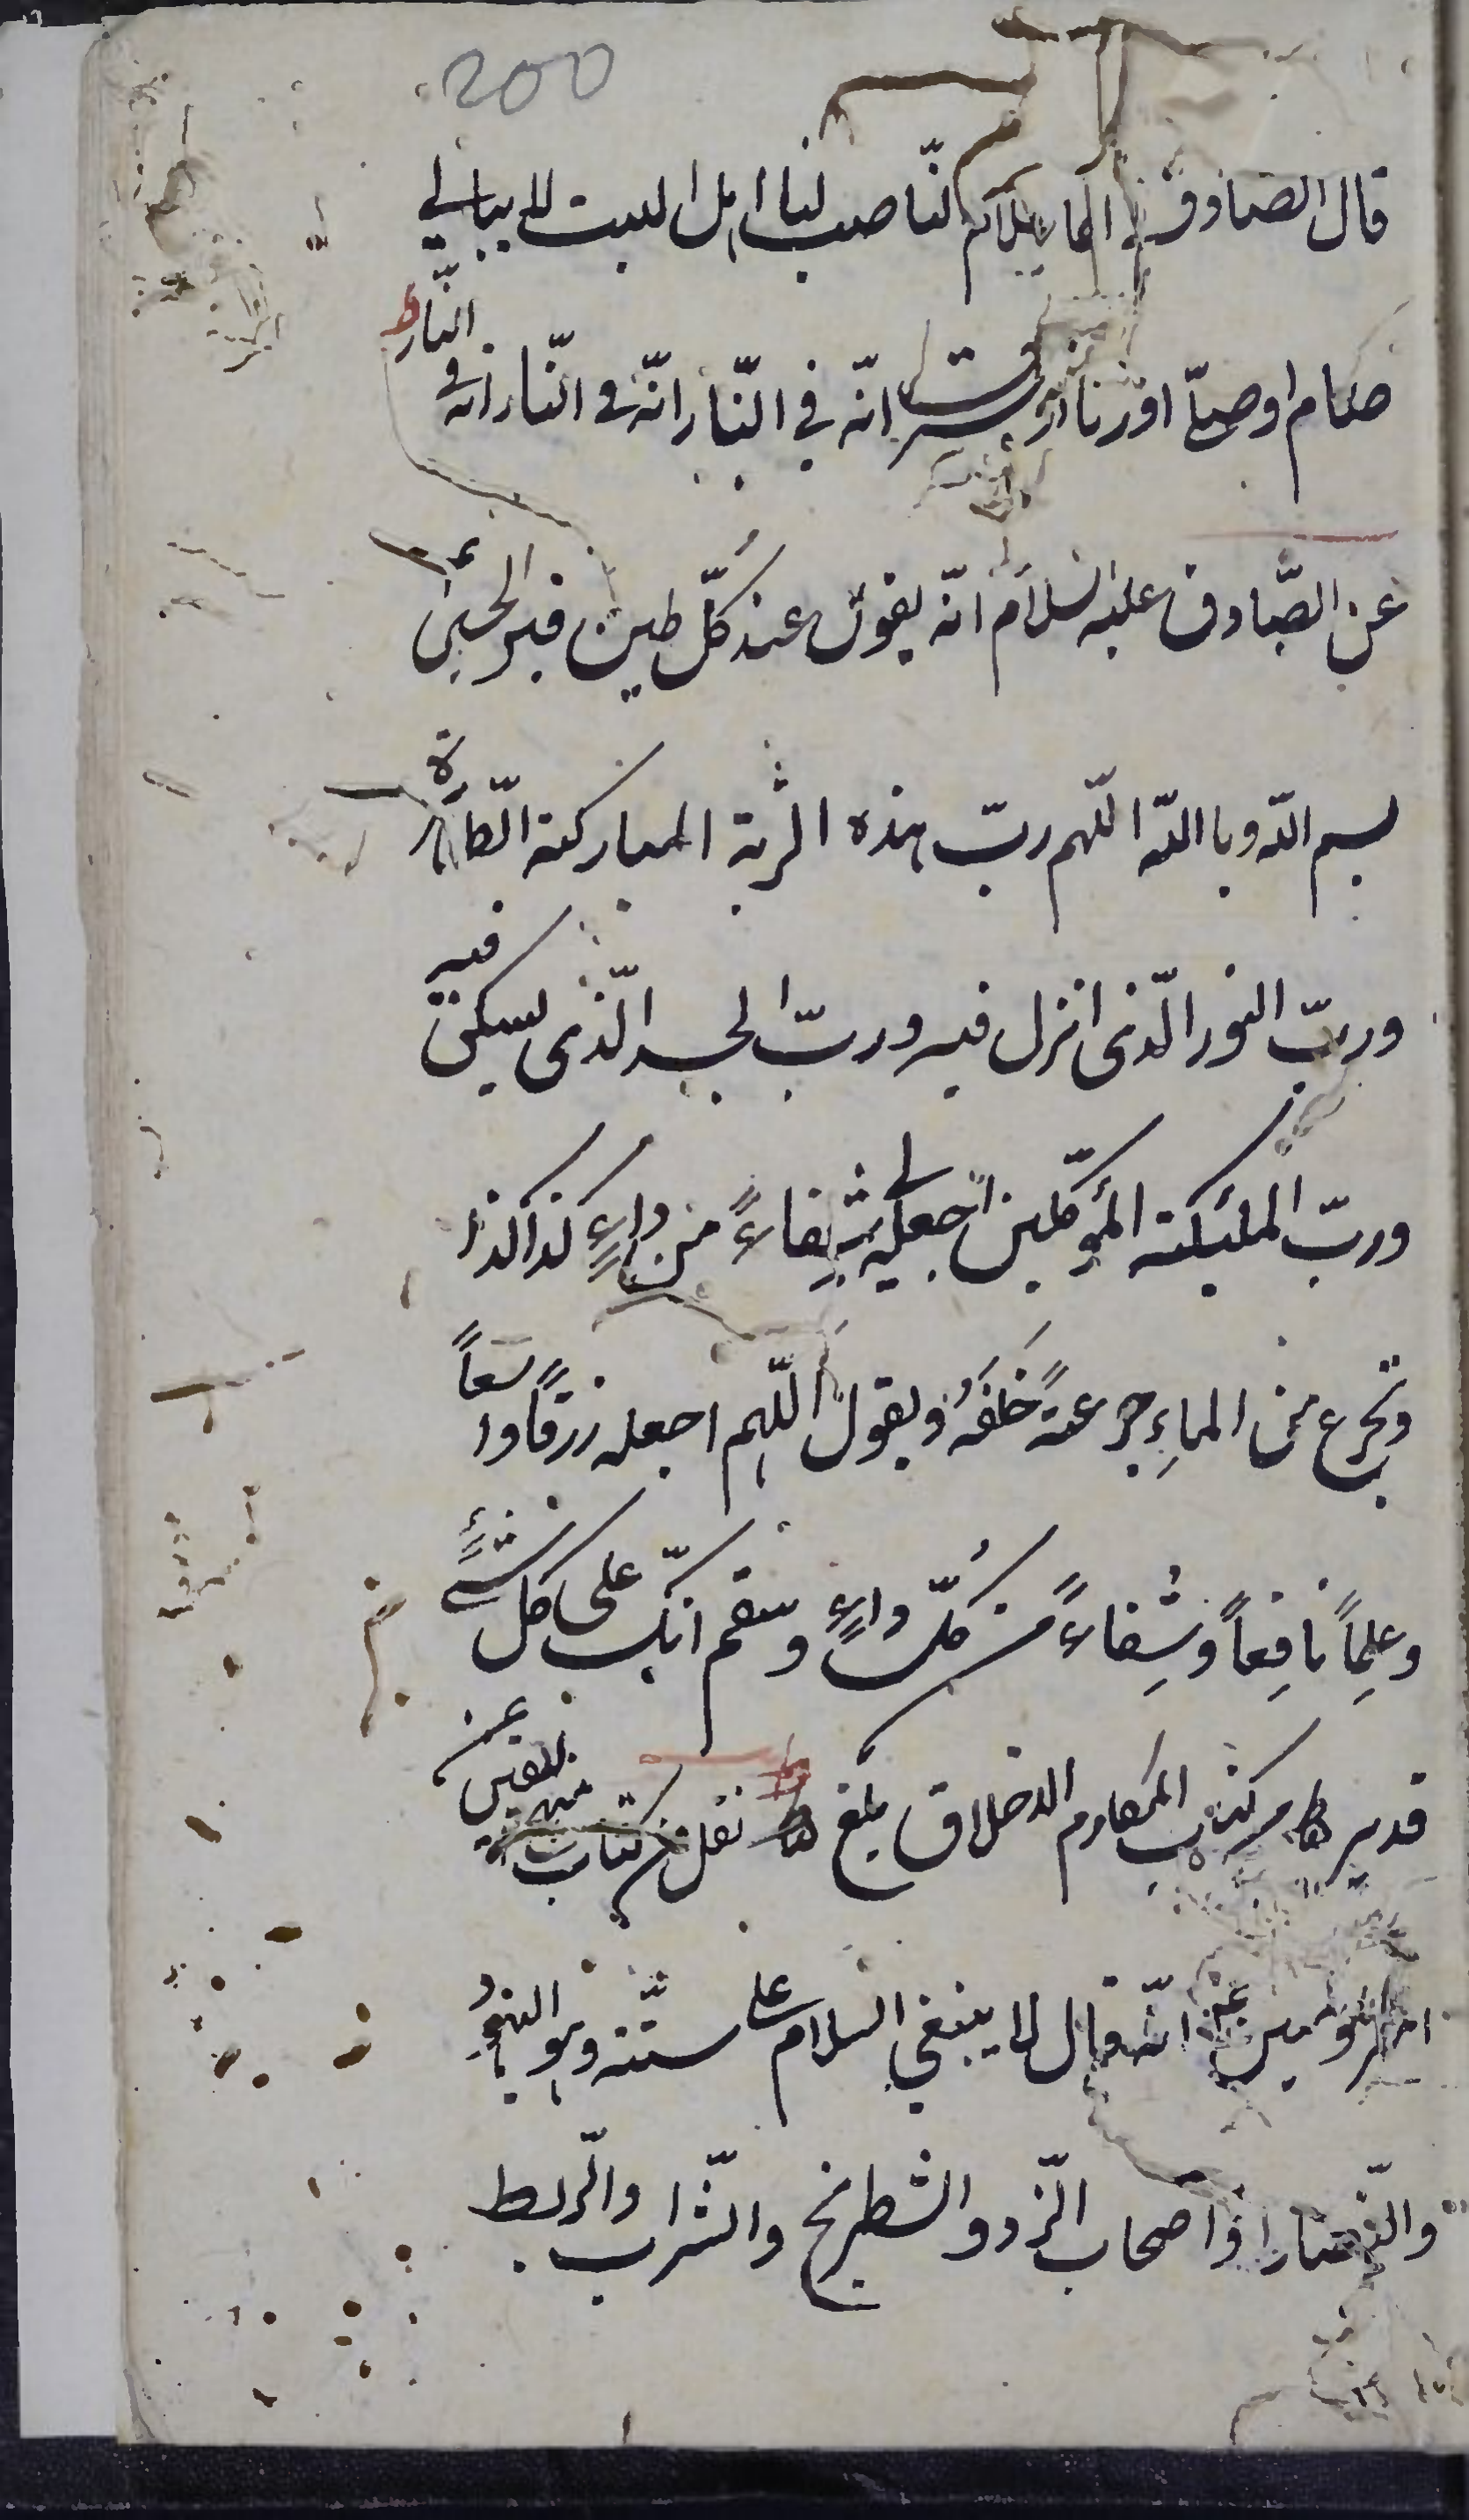 200
قال الصادق عليه السلام الناصب لنا اهل البيت لا يبالي
صام او صلّى او زنا او سرق انّه في النّار انّه في النّار انّه في النّار
عن الصّادق عليه السلام انّه يقول عند كلّ طين قبر الحسين
بسم اللّه وبا اللّه اللّهم ربّ هذه التربة المباركة الطّاهرة
وربّ النور الّذى انزل فيه وربّ الجسد الّذى يسكن فيه
وربّ الملئكته المؤكّلين اجعله لي شِفاءً من داءٍ كذا كذا
وتجرع من الماءِ جرعةً خلفهُ ويقول اللّهم اجعله رزقًا واسعاً
وعلِماً نافِعاً وشِفاءً من كلّ داءٍ وسقم انّك على كل شئٍ
قدير من كتاب المكارم الاخلاق نقل من كتاب
امير المؤمنين انّه قال لا ينبغي السلام على ستّته وهو اليهُود
والنّصارا واصحاب النّرد والشطرنج والشّراب والبربط